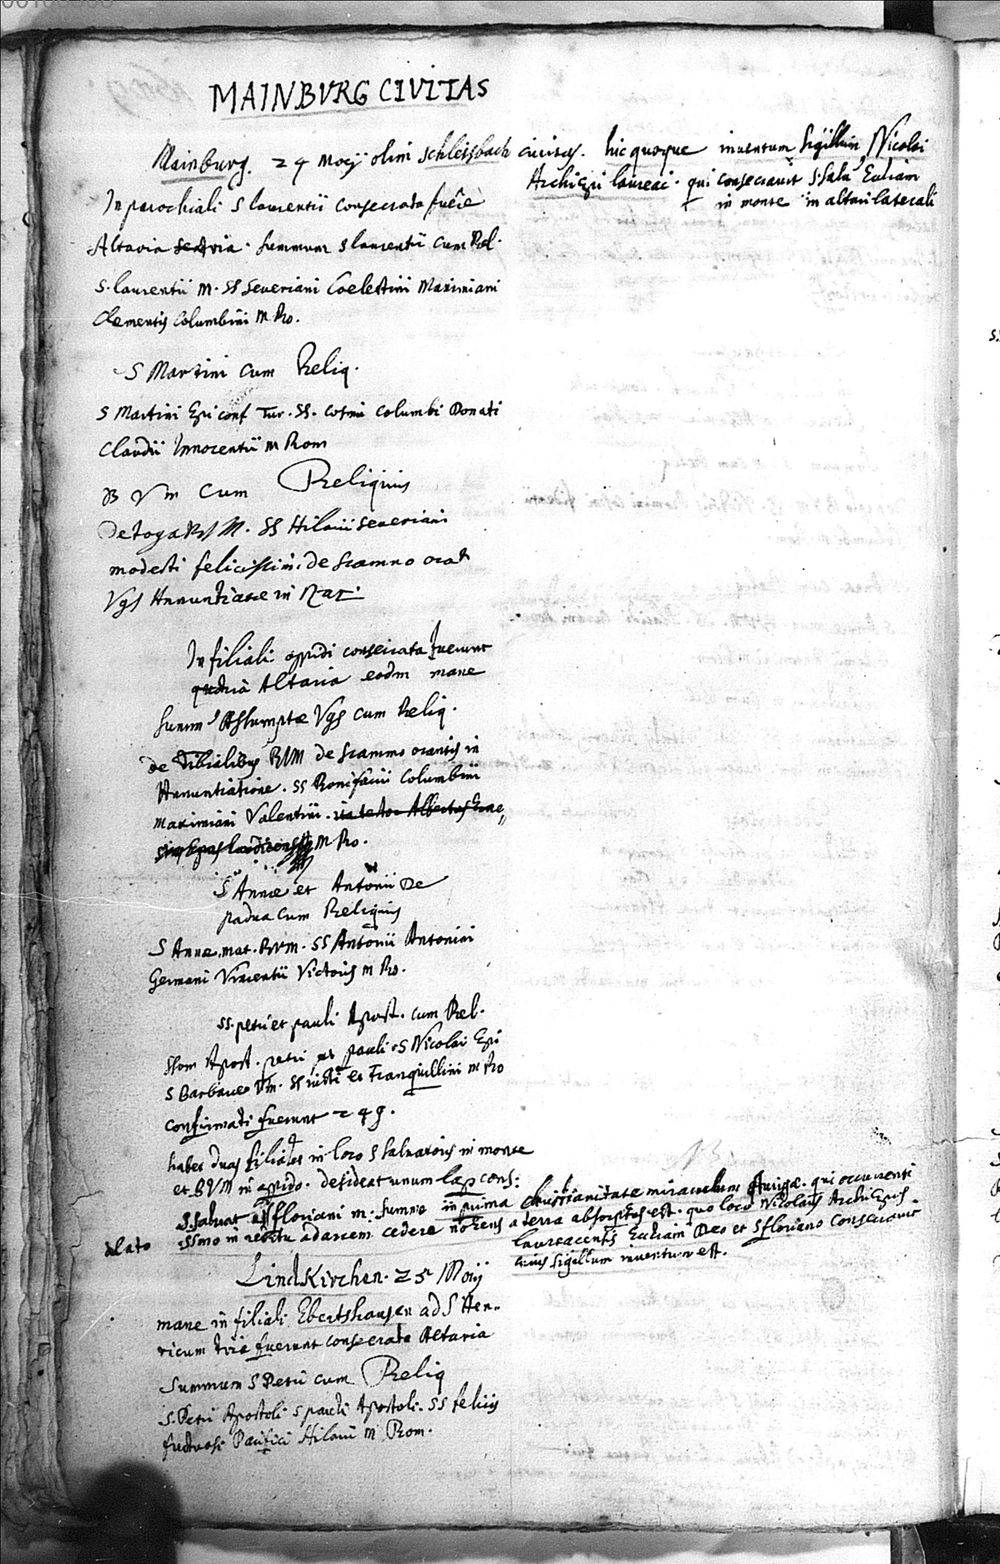 MAINBVRG CIVITAS
Mainburg. 24 Maij olim Schleisbach civitas. hic quoque inventum Sigillum Nicolai
Archiepi laureac. qui consecravit S. Salu Eccliam
in monte in altari laterali
In parochiali S laurentii consecrata fuere
Altaria tria. summum S laurentii cum Rel.
S. laurentii M. SS Severiani Coelestini Maximiani
Clementis Columbini M Ro.
S Martini cum Reliq.
S Martini Epi conf Tur. SS. Cosmi Columbi Donati
Claudii Innocentii M Rom
B V M cum Reliquiis
De toga BVM. SS Hilarii Severiani
modesti felicissimi de scamno orat
Vgs Annuntiatae in Naz.
In filiali oppidi consecrata fuerunt
Altaria eodm mane
Summ Assumptae Vgs cum Reliq.
de BVM de scamno orantis in
Annuntiatione. SS Bonifacii Columbini
Maximiani Valentini. M Ro.
S Annae et Antonii De
padua cum Reliquiis
S Annae mat. BVM. SS Antonii Antonini
Germani Vincentii Victoris M Ro.
SS. petri et pauli Apost. cum Rel.
SSom Apost. petri et pauli. S Nicolai Epi
S Barbarae VM. SS et Tranquillini M Ro
Confirmati fuerunt 249.
habet duas filiales in loco S Salvatoris in monte
et BVM in oppido. desiderat unum lap cons:
S Salvat et S floriani m. summe in prima Christianitate miraculum Auriga. qui occurrenti
SSmo in adarcem cedere nolens a terra absorptus est. quo loco Nicolaus ArchiEpus
laureacensis Eccliam Deo et S floriano Consecravit
cuius sigillum inventum est.
Lindkirchen. 25 Maij
mane in filiali Ebertshausen ad S Hen-
ricum tria fuerunt consecrata Altaria
Summum S Petri cum Reliq
S. Petri Apostoli S pauli Apostoli. SS felicis
fructuosi Pacifici Hilarii M Rom.